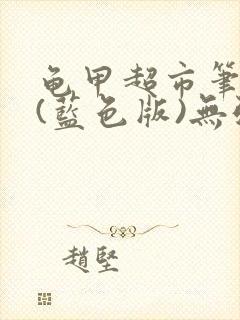 龟甲超市筆
(藍色版)無
趙堅